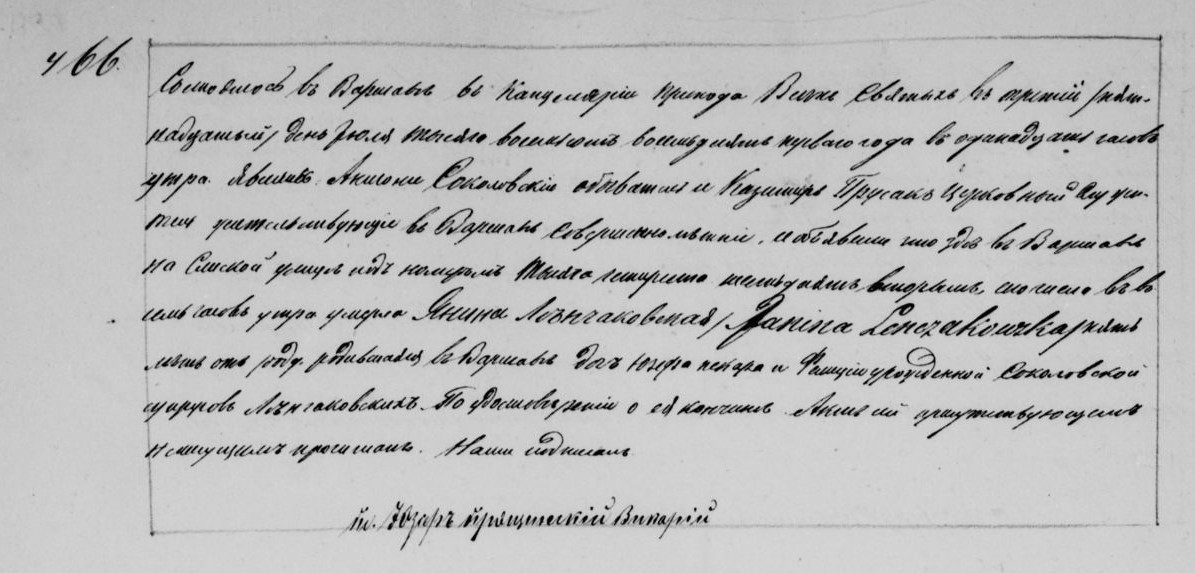 466.
Состоялось въ Варшавѣ въ Канцеляріи прихода Всѣхъ Святыхъ въ третій /пят-
надцатый/ день Іюля тысяча восемьсотъ восемьдесятъ перваго года въ одинадцать часовъ
утра. Явились Антоній Соколовскій обыватель и Казиміръ Прусакъ церковный служи-
тель жительствующіе въ Варшавѣ совершеннолѣтніе, и объявили что здѣсь въ Варшавѣ
на улицѣ подъ номеромъ тысяча четыреста шестьдесятъ вторымъ, числа въ во
семь часовъ утра умерла Янина Лэнчаковская /Janina Lenczakowska/ пять
лѣтъ отъ роду родившаяся въ Варшавѣ дочь Юзефа пекаря и Фелиціи урожденной Соколовской
супруговъ Лэнчаковскихъ. По удостовѣреніи о ея кончинѣ Актъ сей присутствующимъ
неписущимъ прочитанъ. Нами подписанъ
Кс. Юзефъ Викарій